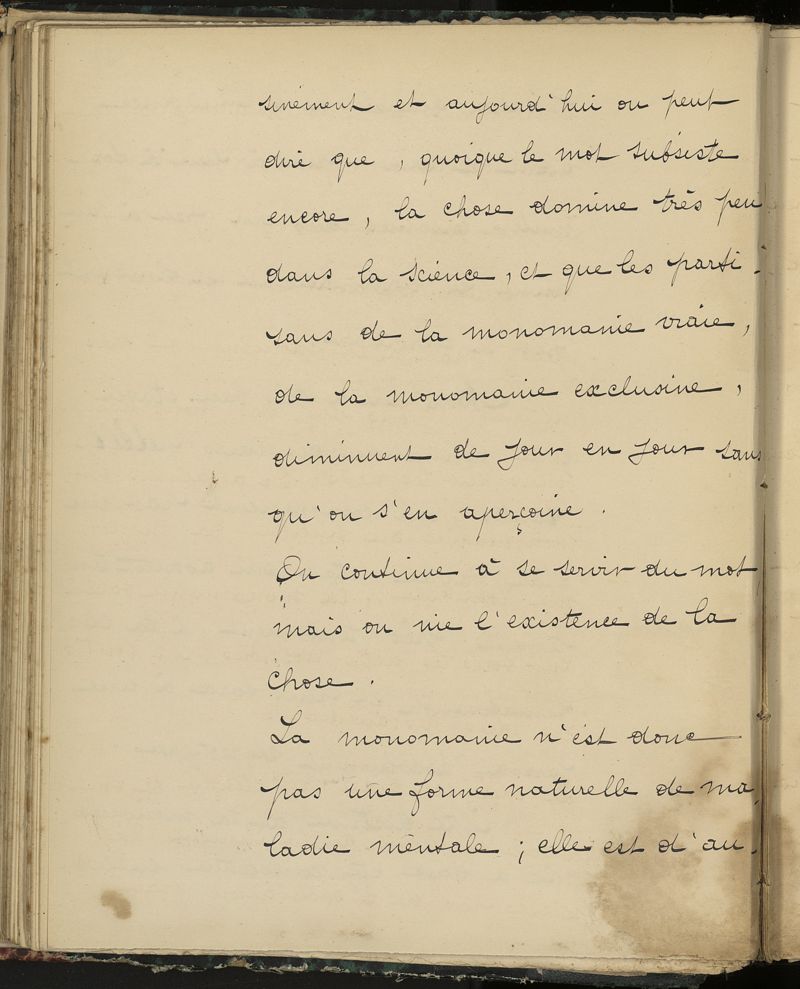 sinément et aujourd'hui on peut
dire que, quoique le mot subsiste
encore, la chose domine très peu
dans la science, et que les parti-
sans de la monomanie vraie,
de la monomanie exclusive,
diminuent de jour en jour sans
qu'on s'en aperçoive.
On continue à se servir du mot,
mais on nie l'existence de la
chose.
La monomanie n'est donc
pas une forme naturelle de ma-
ladie mentale; elle est d'au-